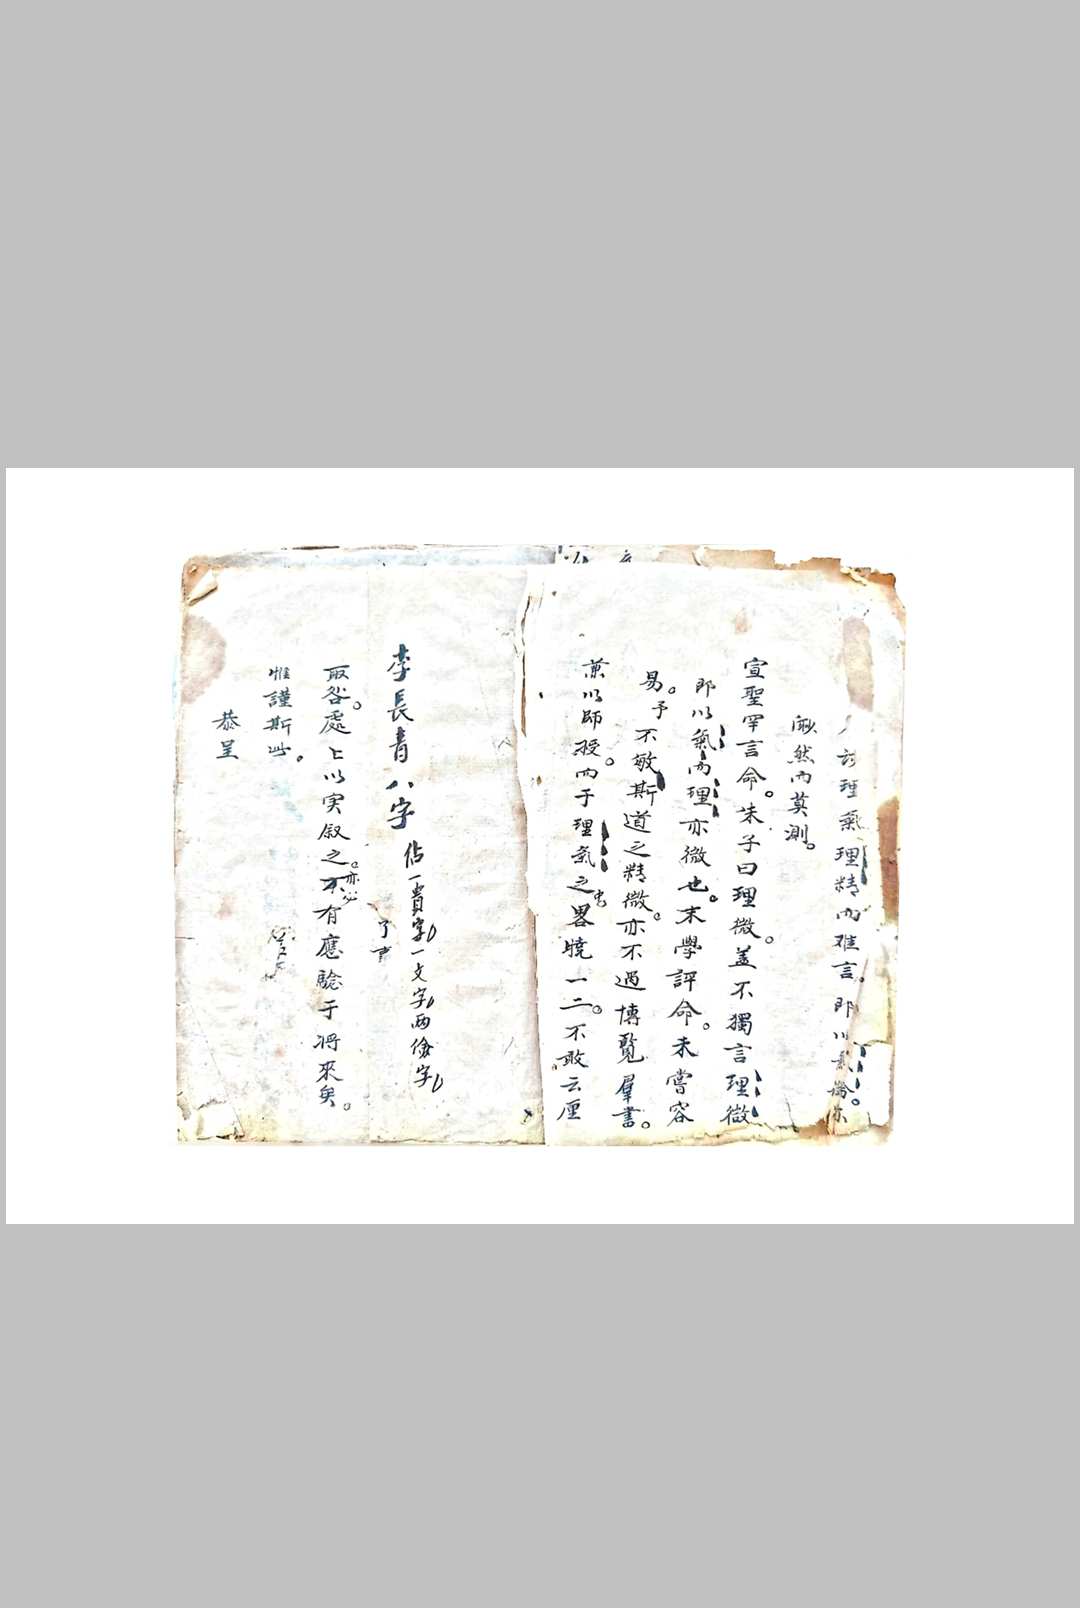 理氣理精而难言。即以氣論亦
渺然而莫測。
宣聖罕言命。朱子曰理微。盖不獨言理微
即以氣而理亦微也。末學評命。未嘗容
易。予不敏斯道之精微。亦不過博覽羣書。
兼以師授。而于理氣之畧曉一二。不敢云厘
李長青八字 佔一貴字一文字両儉字
了事
取咎處上以実叙之。亦必有應驗于将來矣。
惟謹斯此。
恭呈